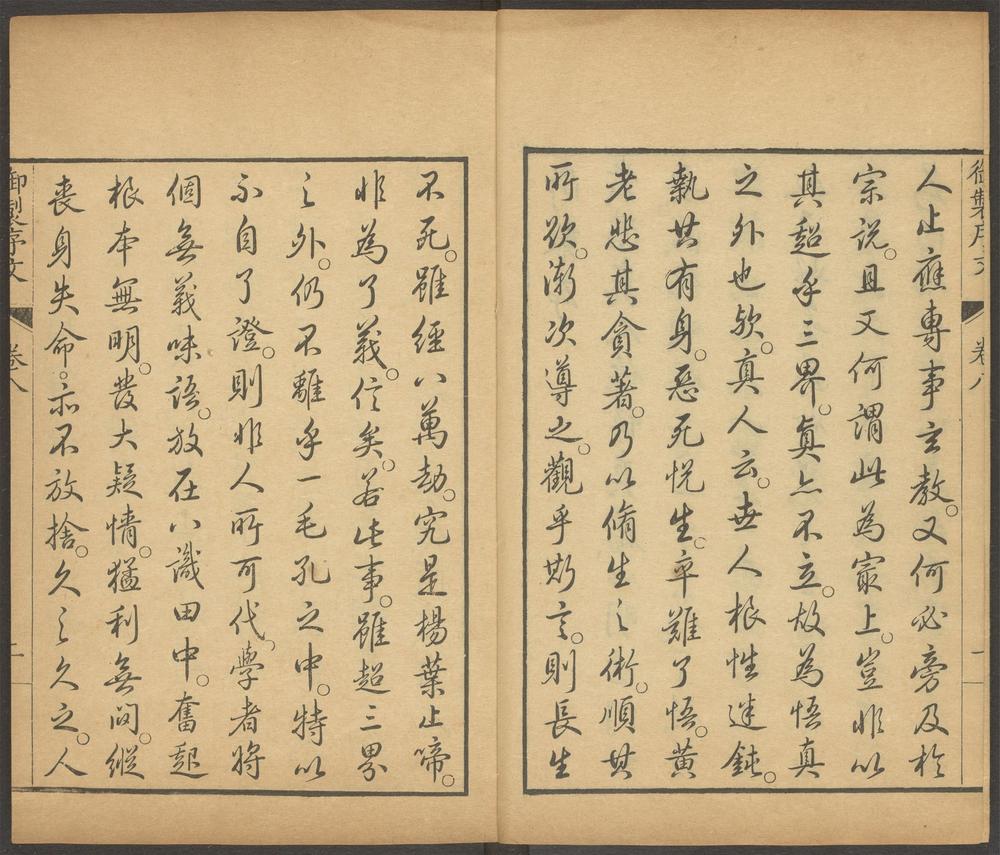 御製序文 卷八 一
人止應專事玄教。又何必旁及於
宗說。且又何謂此為最上。豈非以
其超乎三界。真亦不立。故為悟真
之外也欤。真人云。世人根性迷鈍。
執其有身。惡死悅生。卒難了悟。黃
老悲其貪著。乃以脩生之術。順其
所欲。漸次導之。觀乎斯言。則長生
不死。雖經八萬劫。究是楊葉止啼。
非為了義。信矣。若此事。雖超三界
之外。仍不離乎一毛孔之中。特以
不自了證。則非人所可代。學者將
個無義味語。放在八識田中。奮起
根本無明。發大疑情。猛利無間。縱
喪身失命。亦不放捨。久之久之。人
御製序文 卷八 二